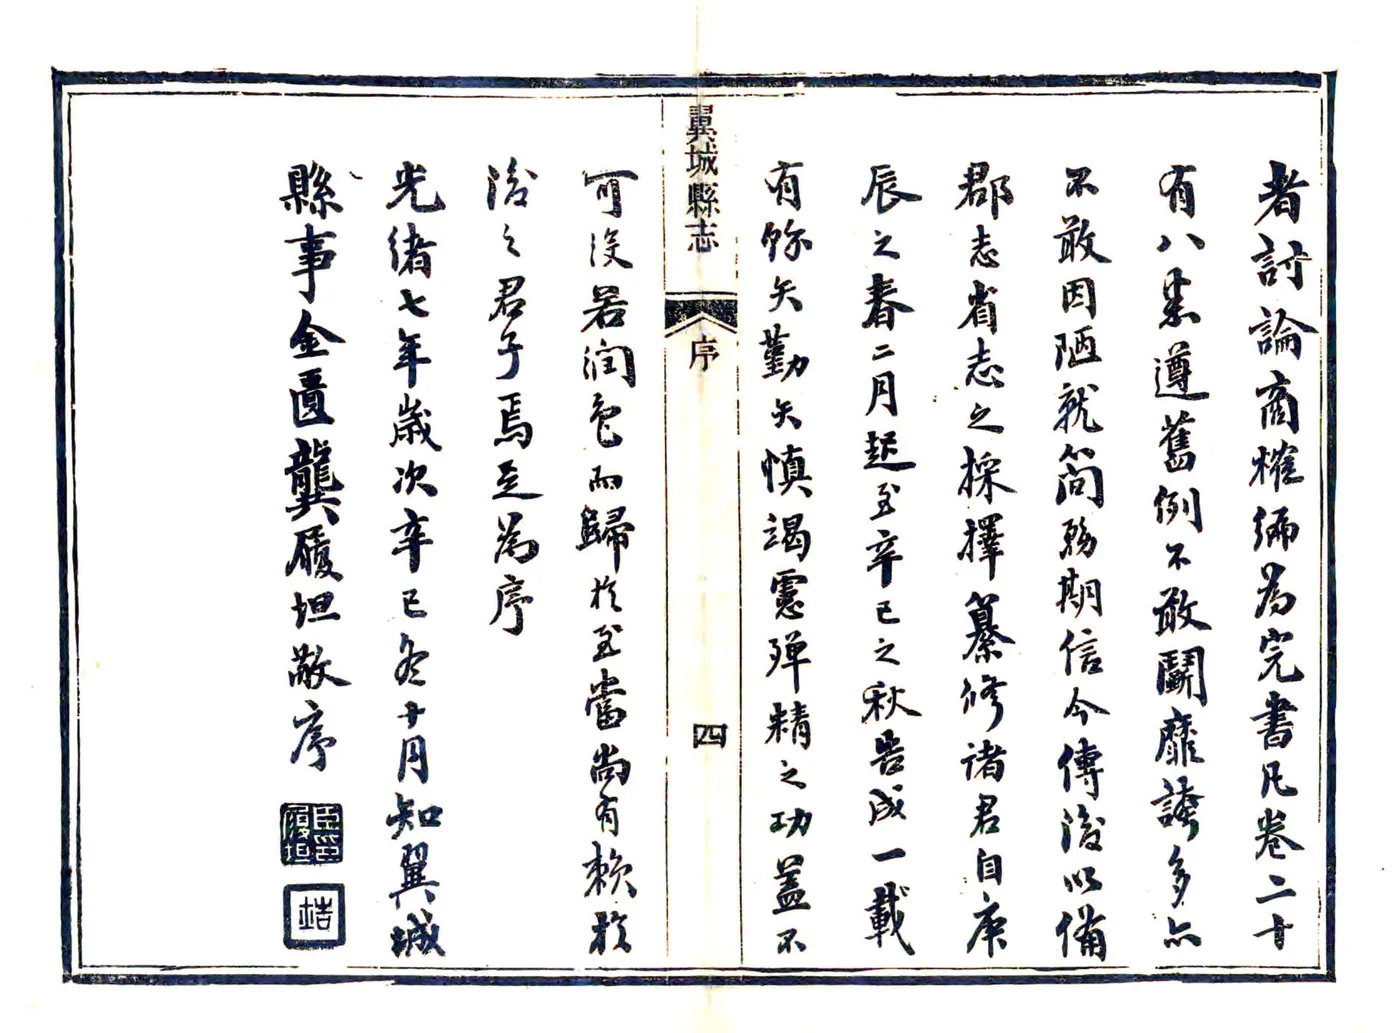 者討論商榷編為完書凡卷二十
有八悉遵舊例不敢鬭靡誇多亦
不敢因陋就簡務期信今傳後以備
郡志省志之採擇纂修諸君自庚
辰之春二月起至辛巳之秋告成一載
有餘矣勤矣慎竭慮殫精之功蓋不
翼城縣志
序
四
可沒若潤色而歸於至當尚有賴於
後之君子焉是為序
光緒七年歲次辛巳冬十月知翼城
縣事金匱龔履坦敬序
臣龔履坦